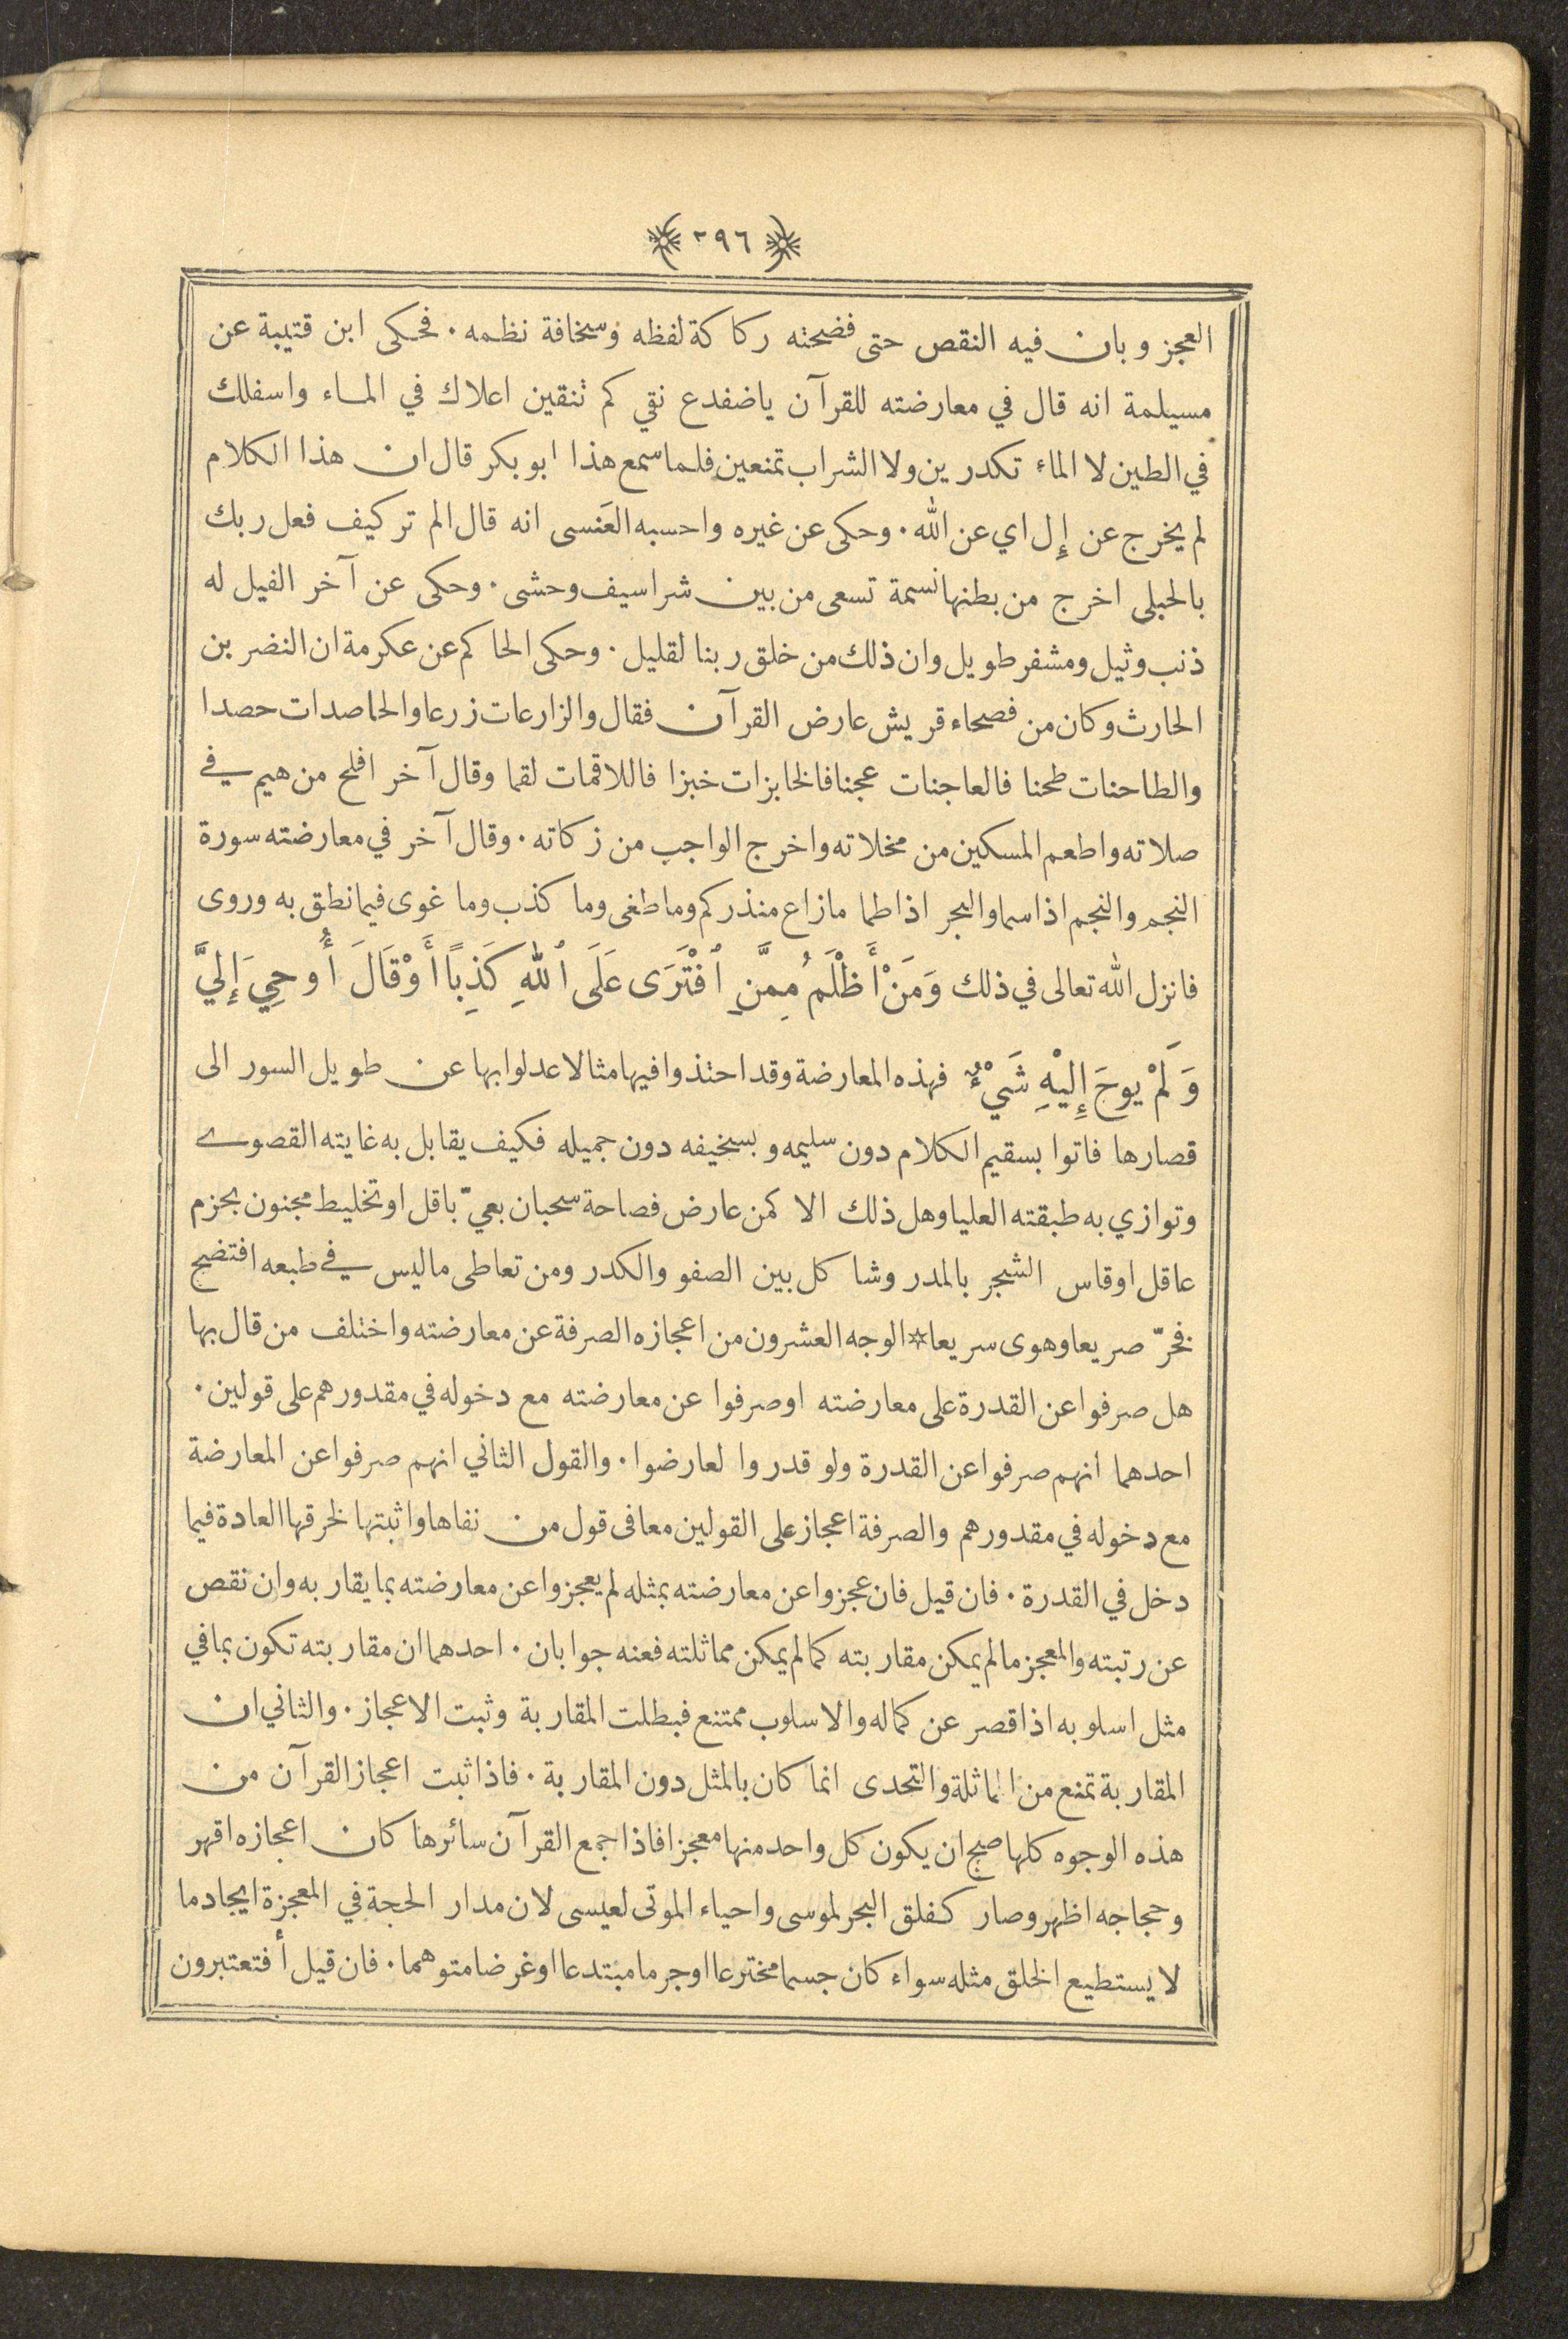 ٢٩٦
العجز وبان فيه النقص حتى فضحته ركاكة لفظه وسخافة نظمه. فحكى ابن قتيبة عن
مسيلمة انه قال في معارضته للقرآن ياضفدع نقي كم تنقين اعلاك في الماء واسفلك
في الطين لا الماء تكدرين ولا الشراب تمنعين فلما سمع هذا ابو بكر قال ان هذا الكلام
لم يخرج عن إِل اي عن الله. وحكى عن غيره واحسبه العَنسى انه قال الم تر كيف فعل ربك
بالحبلى اخرج من بطنها نسمة تسعى من بين شراسيف وحشى. وحكى عن آخر الفيل له
ذنب وثيل ومشفر طويل وان ذلك من خلق ربنا لقليل. وحكى الحاكم عن عكرمة ان النضر بن
الحارث وكان من فصحاء قريش عارض القرآن فقال والزارعات زرعا والحاصدات حصدا
والطاحنات طحنا فالعاجنات عجنا فالخابزات خبزا فاللاقمات لقما وقال آخر افلح من هيم في
صلاته واطعم المسكين من مخلاته واخرج الواجب من زكاته. وقال آخر في معارضته سورة
النجم والنجم اذا سما والبحر اذا طما مازاع منذركم وما طغى وما كذب وما غوى فيما نطق به وروى
فانزل الله تعالى في ذلك وَمَنْ أَظْلَمُ مِمَّنِ ٱفْتَرَى عَلَى ٱللهِ كَذِبًا أَوْ قَالَ أُوحِيَ إِلَيَّ
وَلَمْ يوحَ إِلَيْهِ شَيْءٌ فهذه المعارضة وقد احتذوا فيها مثالا عدلوا بها عن طويل السور الى
قصارها فاتوا بسقيم الكلام دون سليمه وبسخيفه دون جميله فكيف يقابل به غايته القصوى
وتوازي به طبقته العليا وهل ذلك الا كمن عارض فصاحة سحبان بعيّ باقل او تخليط مجنون بجزم
عاقل او قاس الشجر بالمدر وشاكل بين الصفو والكدر ومن تعاطى ماليس في طبعه افتضح
فخرّ صريعا وهوى سريعا * الوجه العشرون من اعجازه الصرفة عن معارضته واختلف من قال بها
هل صرفوا عن القدرة على معارضته او صرفوا عن معارضته مع دخوله في مقدورهم على قولين.
احدهما انهم صرفوا عن القدرة ولو قدروا لعارضوا. والقول الثاني انهم صرفوا عن المعارضة
مع دخوله في مقدورهم والصرفة اعجاز على القولين معا فى قول من نفاها واثبتها لخرقها العادة فيما
دخل في القدرة. فان قيل فان عجزوا عن معارضته بمثله لم يعجزوا عن معارضته بما يقاربه وان نقص
عن رتبته والمعجز ما لم يمكن مقاربته كما لم يمكن مماثلته فعنه جوابان. احدهما ان مقاربته تكون بما في
مثل اسلوبه اذا قصر عن كماله والاسلوب ممتنع فبطلت المقاربة وثبت الاعجاز. والثاني ان
المقاربة تمنع من المماثلة والتحدى انما كان بالمثل دون المقاربة. فاذا ثبت اعجاز القرآن من
هذه الوجوه كلها صح ان يكون كل واحد منها معجزا فاذا جمع القرآن سائرها كان اعجازه اقهر
وحجاجه اظهر وصار كفلق البحر لموسى واحياء الموتى لعيسى لان مدار الحجة في المعجزة ايجاد ما
لا يستطيع الخلق مثله سواء كان جسما مخترعا او جرما مبتدعا او غرضا متوهما. فان قيل أفتعتبرون